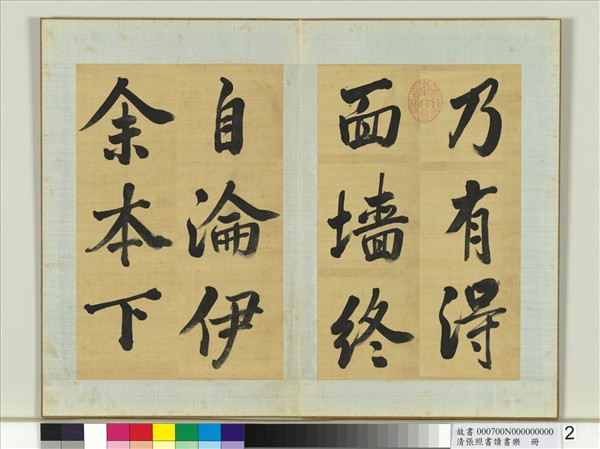 乃有得
面墙終
自淪伊
余本下
故書 000700N000000000
清張照書讀書樂 冊
2